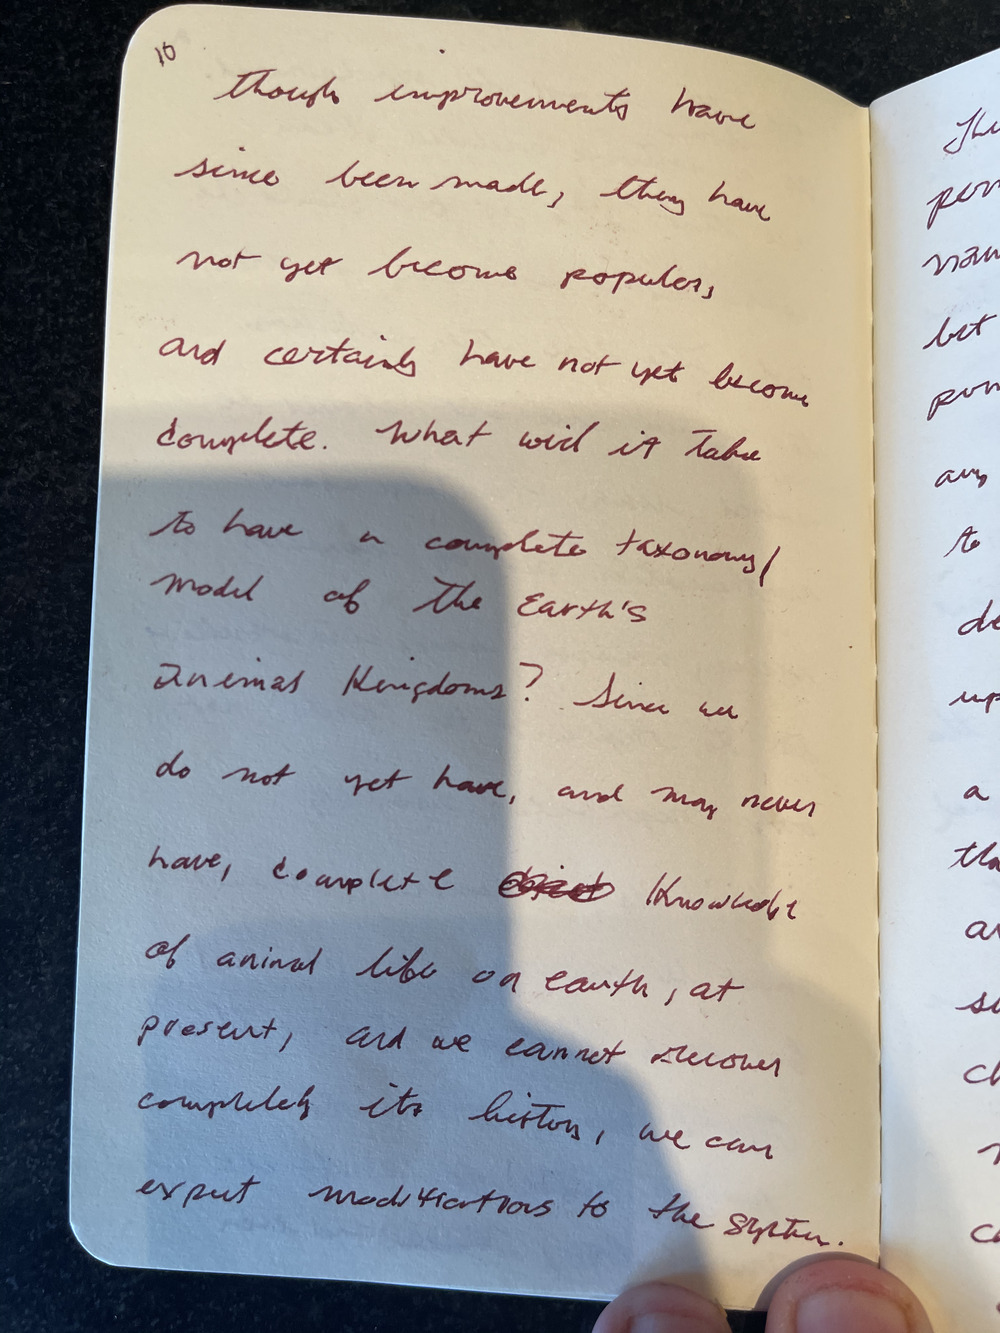 10
though improvements have
since been made, they have
not yet become popular,
and certainly have not yet become
complete. What will it take
to have a complete taxonomy/
model of the Earth's
animal Kingdoms? Since we
do not yet have, and may never
have, complete Knowledge
of animal life on earth, at
present, and we cannot recover
completely its history, we can
expect modifications to the system.
The
per
nam
bet
pur
any
to
de
up
a
tha
ar
su
ch